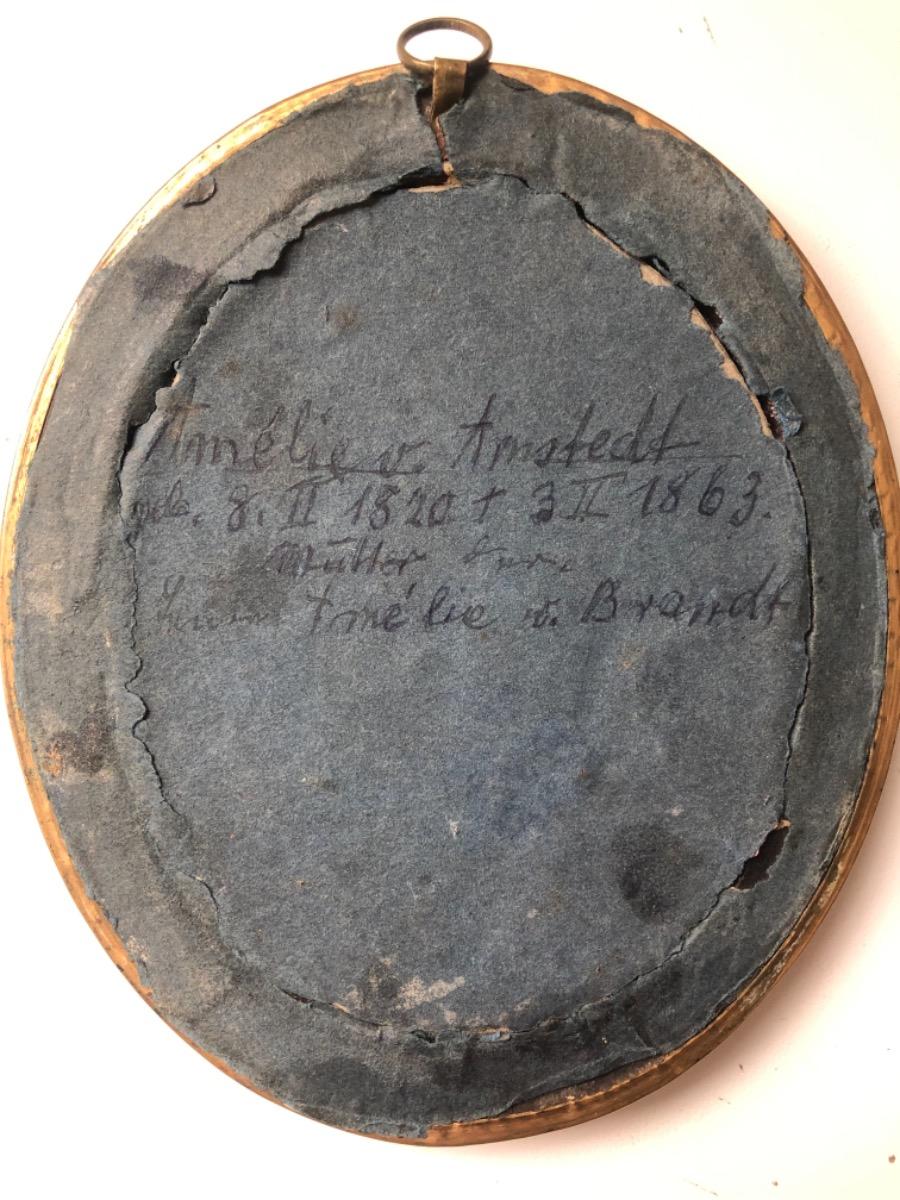 Amélie v. Arnstedt
geb. 8. II 1820 † 3 II 1863.
Mutter
Amélie v. Brandt